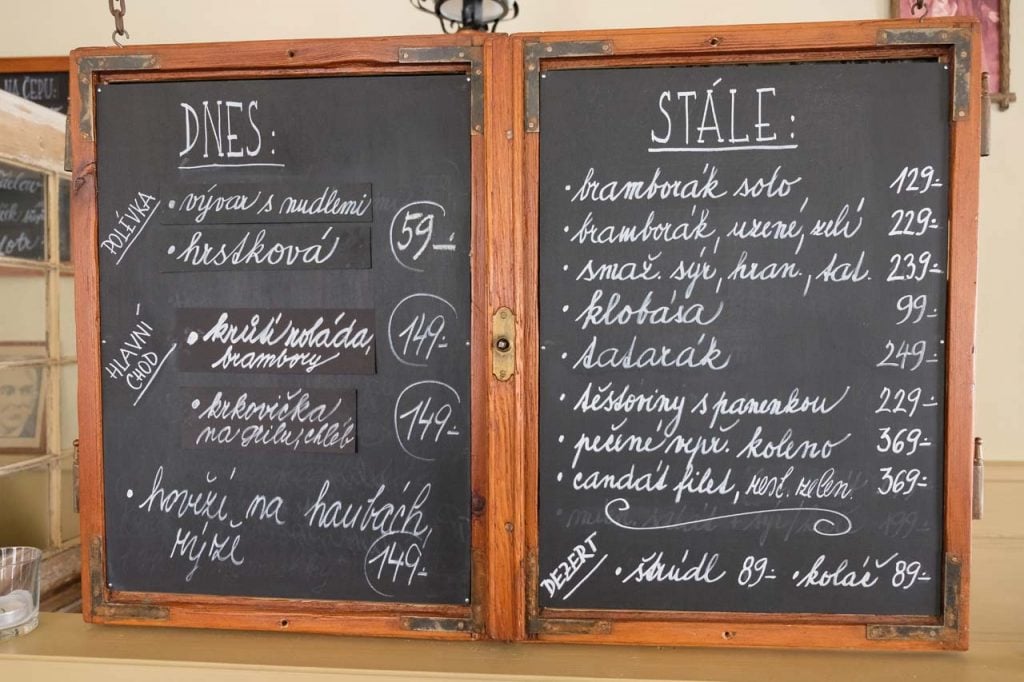 NA ČEPU:
DNES:
POLÉVKA
• vývar s nudlemi
• hrstková
59.-
HLAVNÍ
CHOD
• krůtí roláda,
brambory
149.-
• krkovička
na grilu, chléb
149.-
• hovězí na houbách,
rýže
149.-
STÁLE:
• bramborák solo 129.-
• bramborák, uzené, zelí 229.-
• smaž. sýr, hran., tat. 239.-
• klobása 99.-
• tatarák 249.-
• těstoviny s panenkou 229.-
• pečené vepř. koleno 369.-
• candát filet, rest. zelen. 369.-
DEZERT
• štrúdl 89.- • koláč 89.-